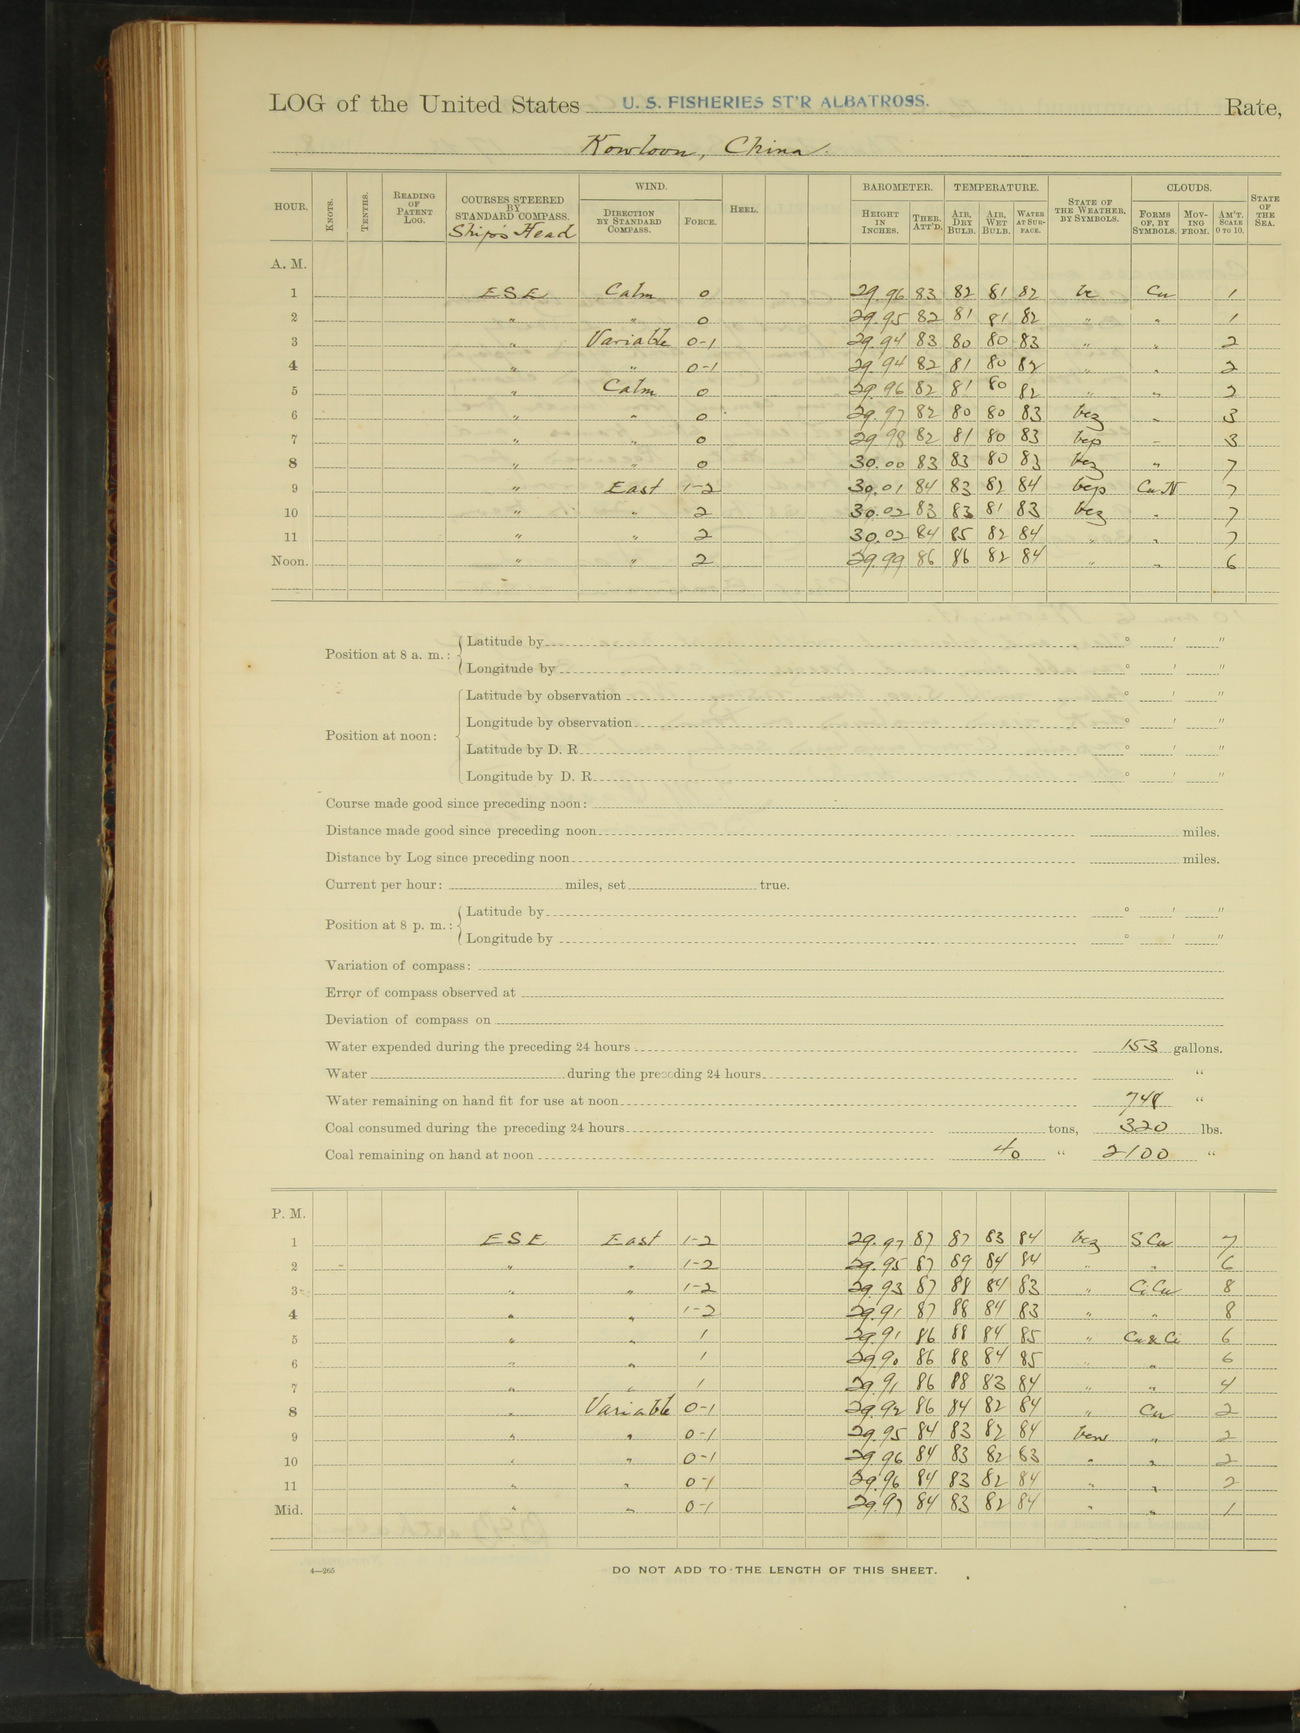 LOG of the United States U. S. FISHERIES ST'R ALBATROSS. Rate,
Kowloon, China.
HOUR. KNOTS. TENTHS. READING OF PATENT LOG. COURSES STEERED BY STANDARD COMPASS. Ship's Head WIND. DIRECTION BY STANDARD COMPASS. FORCE. HEEL. BAROMETER. HEIGHT IN INCHES. THER. ATT'D. TEMPERATURE. AIR, DRY BULB. AIR, WET BULB. WATER AT SURFACE. STATE OF THE WEATHER, BY SYMBOLS. CLOUDS. FORMS OF, BY SYMBOLS. MOVING FROM. AM'T. SCALE 0 TO 10. STATE OF THE SEA.
A. M.
1 ESE Calm 0 29.96 83 82 81 82 bc Cu 1
2 " " 0 29.95 82 81 81 82 " " 1
3 " Variable 0-1 29.94 83 80 80 83 " " 2
4 " " 0-1 29.94 82 81 80 82 " " 2
5 " Calm 0 29.96 82 81 80 82 " " 2
6 " " 0 29.97 82 80 80 83 bcz " 3
7 " " 0 29.98 82 81 80 83 bcp " 3
8 " " 0 30.00 83 83 80 83 bcz " 7
9 " East 1-2 30.01 84 83 82 84 bcp Cu.N 7
10 " " 2 30.02 83 83 81 83 bcz " 7
11 " " 2 30.02 84 85 82 84 " " 7
Noon. " " 2 29.99 86 86 82 84 " " 6
Position at 8 a. m.: Latitude by ° ' "
Longitude by ° ' "
Position at noon: Latitude by observation ° ' "
Longitude by observation ° ' "
Latitude by D. R. ° ' "
Longitude by D. R. ° ' "
Course made good since preceding noon:
Distance made good since preceding noon miles.
Distance by Log since preceding noon miles.
Current per hour: miles, set true.
Position at 8 p. m.: Latitude by ° ' "
Longitude by ° ' "
Variation of compass:
Error of compass observed at
Deviation of compass on
Water expended during the preceding 24 hours 153 gallons.
Water during the preceding 24 hours "
Water remaining on hand fit for use at noon 748 "
Coal consumed during the preceding 24 hours tons, 320 lbs.
Coal remaining on hand at noon 40 " 2100 "
P. M.
1 ESE East 1-2 29.97 87 87 83 84 bcz S.Cu 7
2 " " 1-2 29.95 87 89 84 84 " " 6
3 " " 1-2 29.93 87 88 84 83 " Ci.Cu 8
4 " " 1-2 29.91 87 88 84 83 " " 8
5 " " 1 29.91 86 88 84 85 " Cu & Ci 6
6 " " 1 29.90 86 88 84 85 " " 6
7 " " 1 29.91 86 88 83 84 " " 4
8 " Variable 0-1 29.92 86 84 82 84 " Cu 2
9 " " 0-1 29.95 84 83 82 84 " 2
10 " " 0-1 29.96 84 83 82 83 " " 2
11 " " 0-1 29.96 84 83 82 84 " " 2
Mid. " " 0-1 29.97 84 83 82 84 " " 1
4—265
DO NOT ADD TO THE LENGTH OF THIS SHEET.